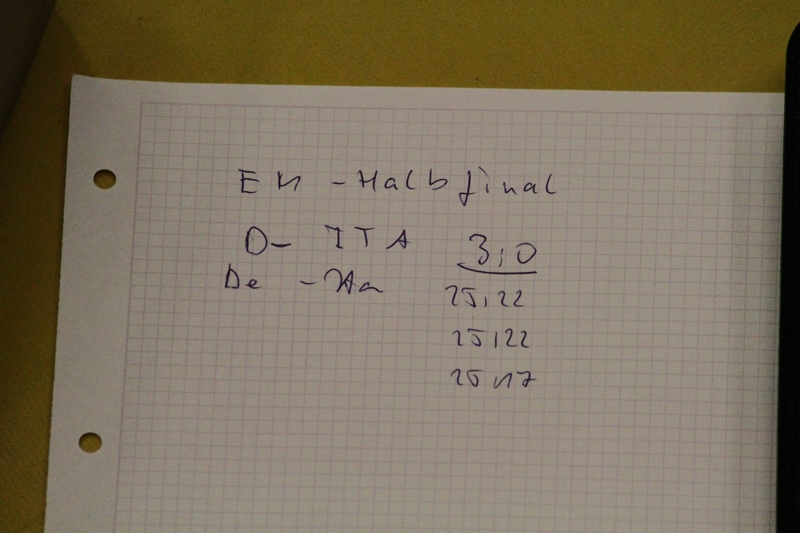 EM - Halbfinal
D - ITA 3:0
De - Ita 25:22
25:22
25:17